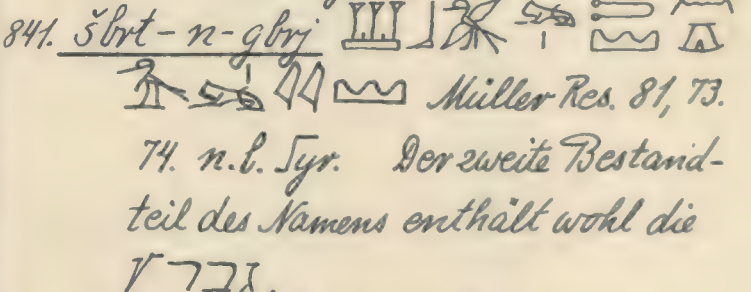 841. šbrt-n-gbrj
Müller Res. 81, 73.
74. n.l. Syr. Der zweite Bestand-
teil des Namens enthält wohl die
√ גבר.